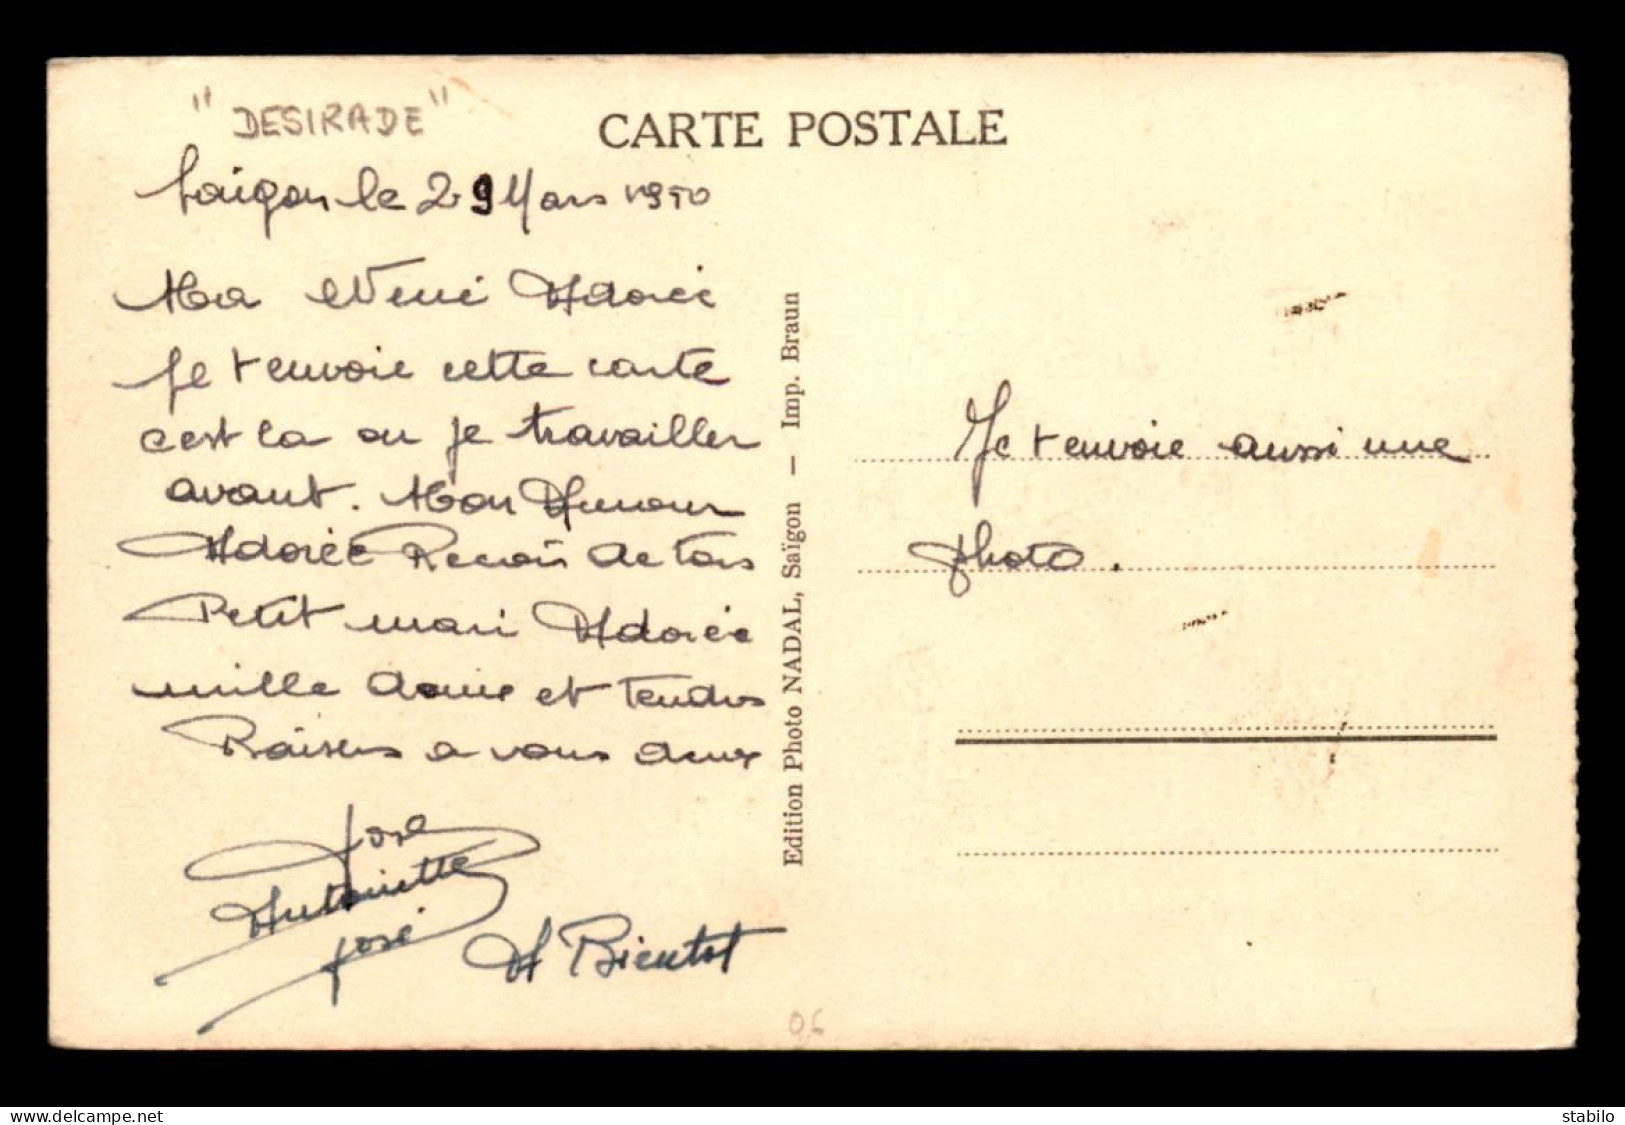 "DESIRADE"
CARTE POSTALE
Saigon le 29 Mars 1950
Ma Adorée
Je t envoie cette carte
c est la ou je travailler
avant. Mon Amour
Adorée Recois de ton
Petit mari Adorée
mille doux et tendres
Baisers a vous deux
José
Antoinette
José
A Bientot
Edition Photo NADAL, Saïgon — Imp. Braun
Je t envoie aussi une
photo.
06
delcampe.net
stabilo